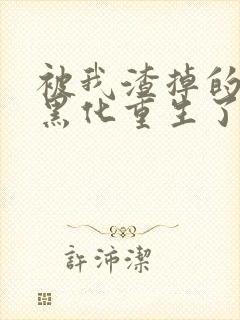 被我渣掉的
黑化重生了
許沛潔